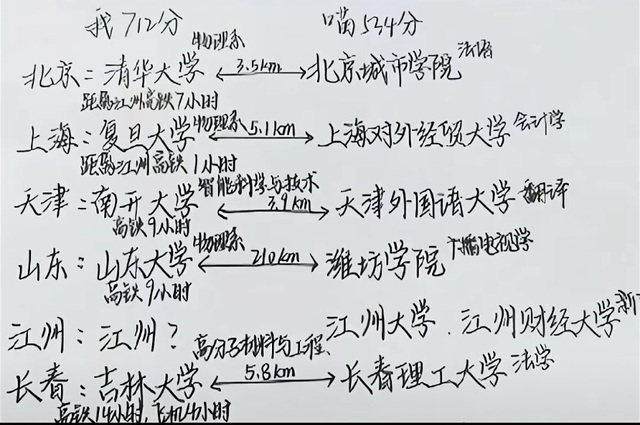 我712分 喵534分
物理系
北京：清华大学 3.5km 北京城市学院 法语
距离江州高铁7小时
上海：复旦大学 物理系 5.1km 上海对外经贸大学 会计学
距离江州高铁1小时
智能科学与技术
天津：南开大学 3.9km 天津外国语大学 翻译
高铁9小时
山东：山东大学 物理系 210km 潍坊学院 广播电视学
高铁9小时
江州：江州？ 江州大学．江州财经大学 新
高分子材料与工程
长春：吉林大学 5.8km 长春理工大学 法学
高铁14小时，飞机4小时